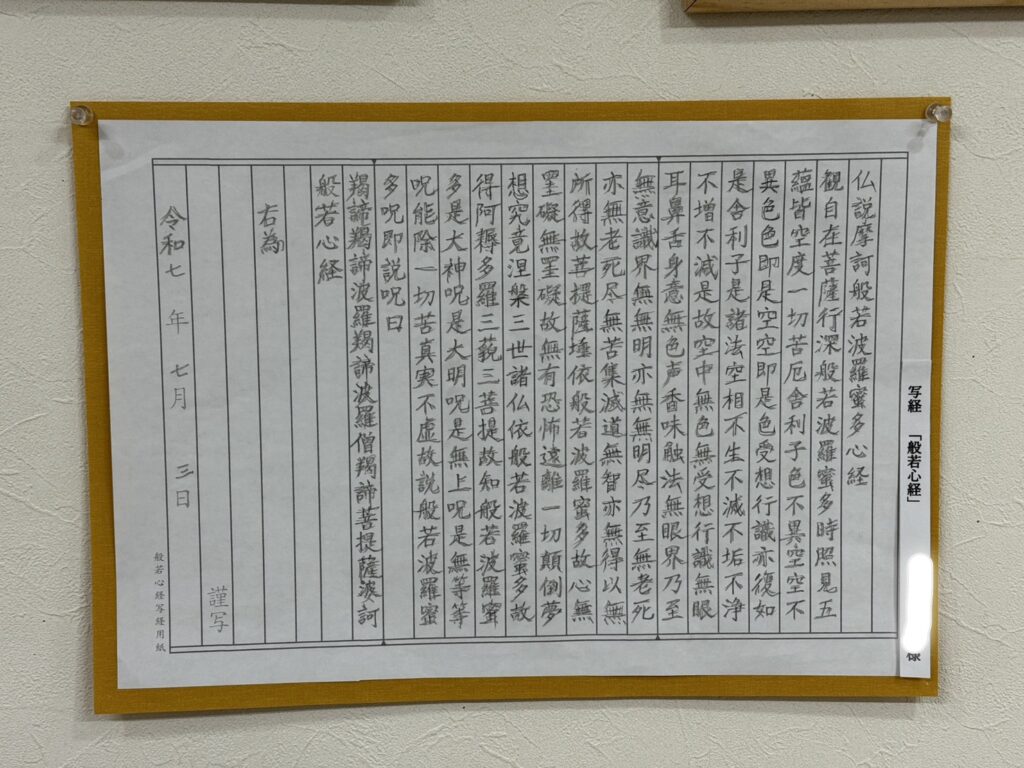 写経 「般若心経」
様
仏説摩訶般若波羅蜜多心経
観自在菩薩行深般若波羅蜜多時照見五
蘊皆空度一切苦厄舎利子色不異空空不
異色色即是空空即是色受想行識亦復如
是舎利子是諸法空相不生不滅不垢不浄
不増不減是故空中無色無受想行識無眼
耳鼻舌身意無色声香味触法無眼界乃至
無意識界無無明亦無無明尽乃至無老死
亦無老死尽無苦集滅道無智亦無得以無
所得故菩提薩埵依般若波羅蜜多故心無
罣礙無罣礙故無有恐怖遠離一切顛倒夢
想究竟涅槃三世諸仏依般若波羅蜜多故
得阿耨多羅三藐三菩提故知般若波羅蜜
多是大神呪是大明呪是無上呪是無等等
呪能除一切苦真実不虚故説般若波羅蜜
多呪即説呪曰
羯諦羯諦波羅羯諦波羅僧羯諦菩提薩婆訶
般若心経
右為
謹写
令和七年 七月 三日
般若心経写経用紙